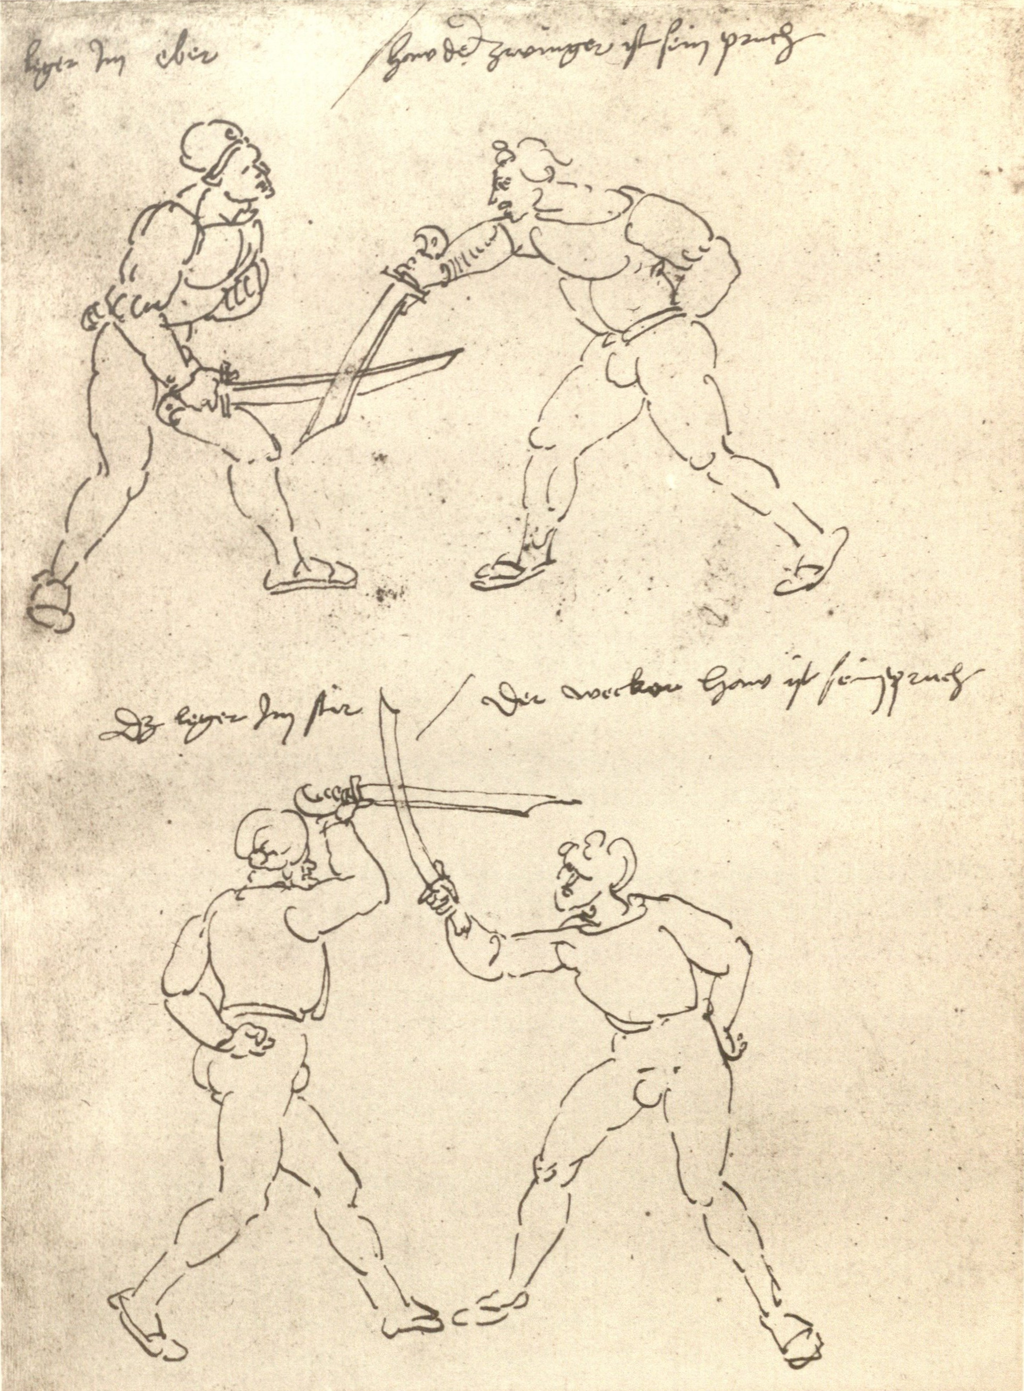 leger Im eber / haw de zwinger ist sein spruch
Dz leger Im stir / Der wecker haw ist sein spruch